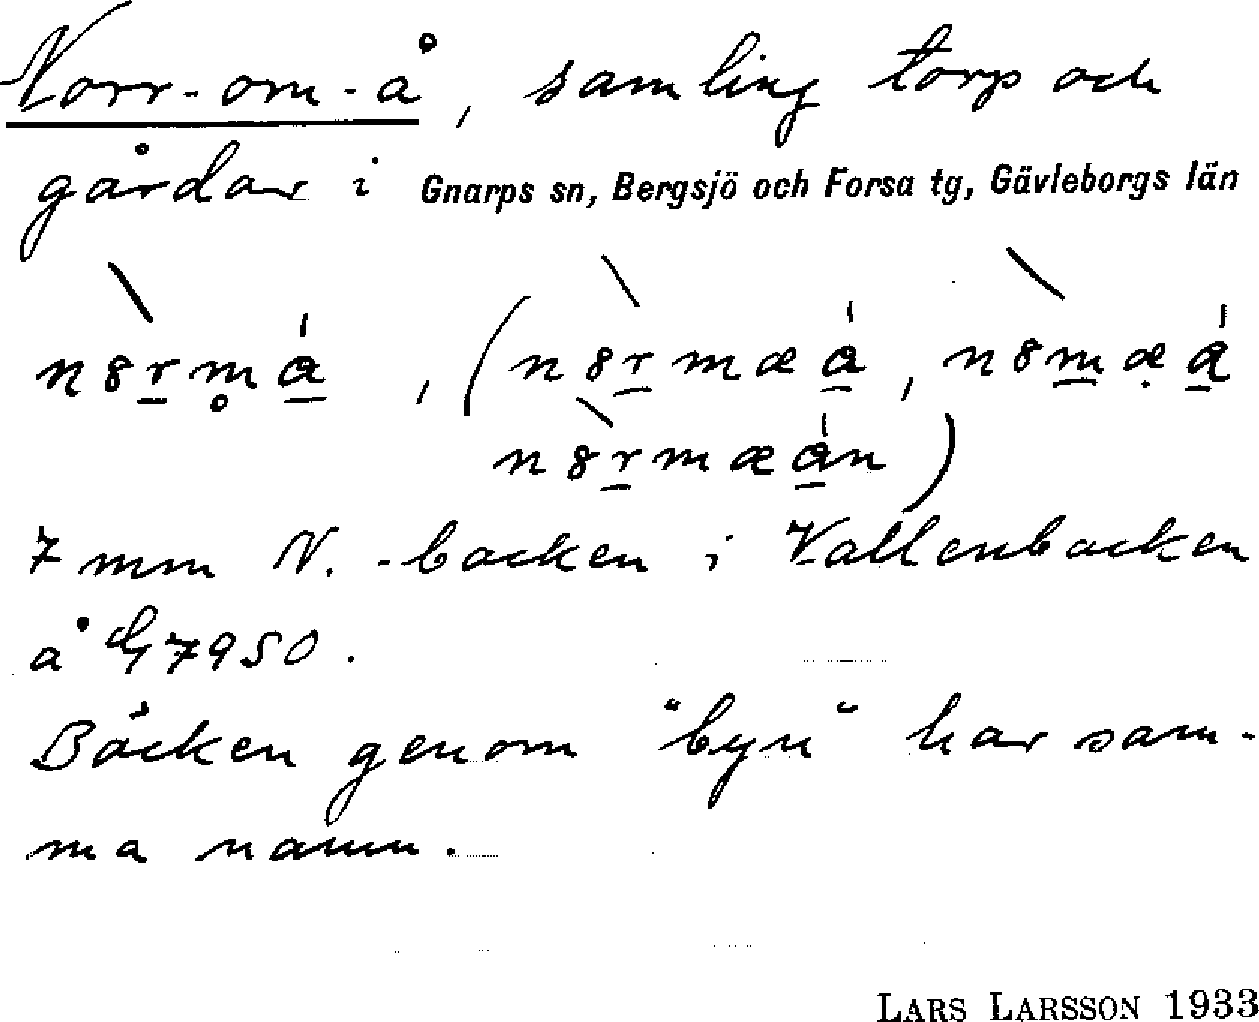 Norr-om-å, samling torp och
gårdar i Gnarps sn, Bergsjö och Forsa tg, Gävleborgs län
n8rm̥a, (n8rmæa, n8mæ̣a
n8rmæan)
7 mm N. -backen i Vallenbacken
å G7950.
Bäcken genom "byn" har sam-
ma namn.
LARS LARSSON 1933